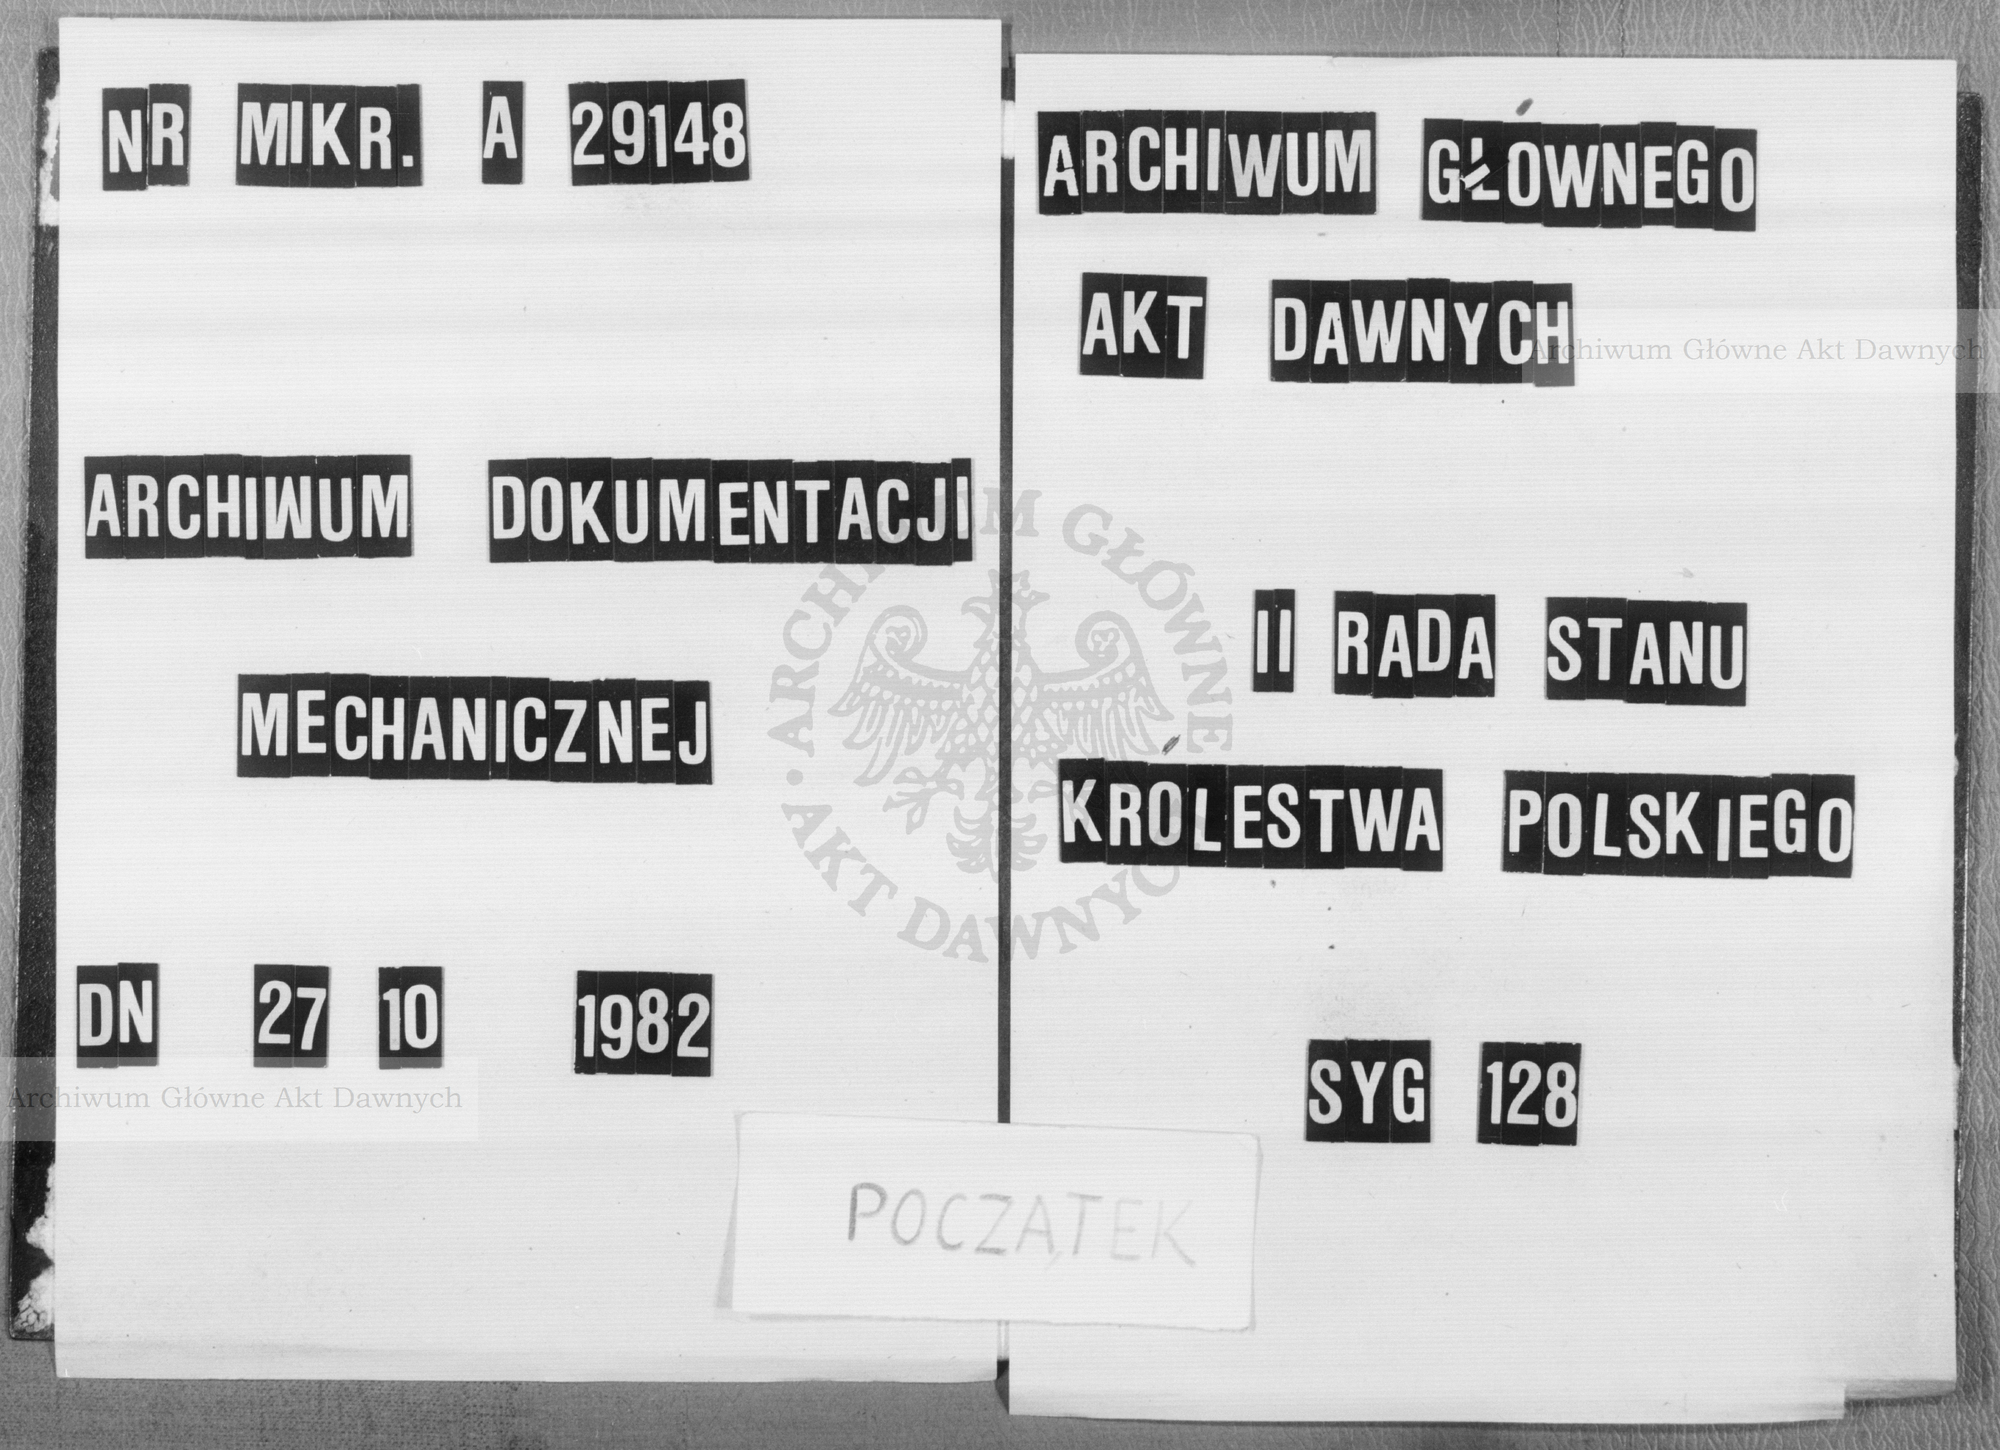 NR MIKR. A 29148
ARCHIWUM DOKUMENTACJI
MECHANICZNEJ
DN 27 10 1982
ARCHIWUM GŁÓWNEGO
AKT DAWNYCH
II RADA STANU
KRÓLESTWA POLSKIEGO
SYG 128
POCZĄTEK
Archiwum Główne Akt Dawnych
Archiwum Główne Akt Dawnych
ARCHIWUM GŁÓWNE
AKT DAWNYCH